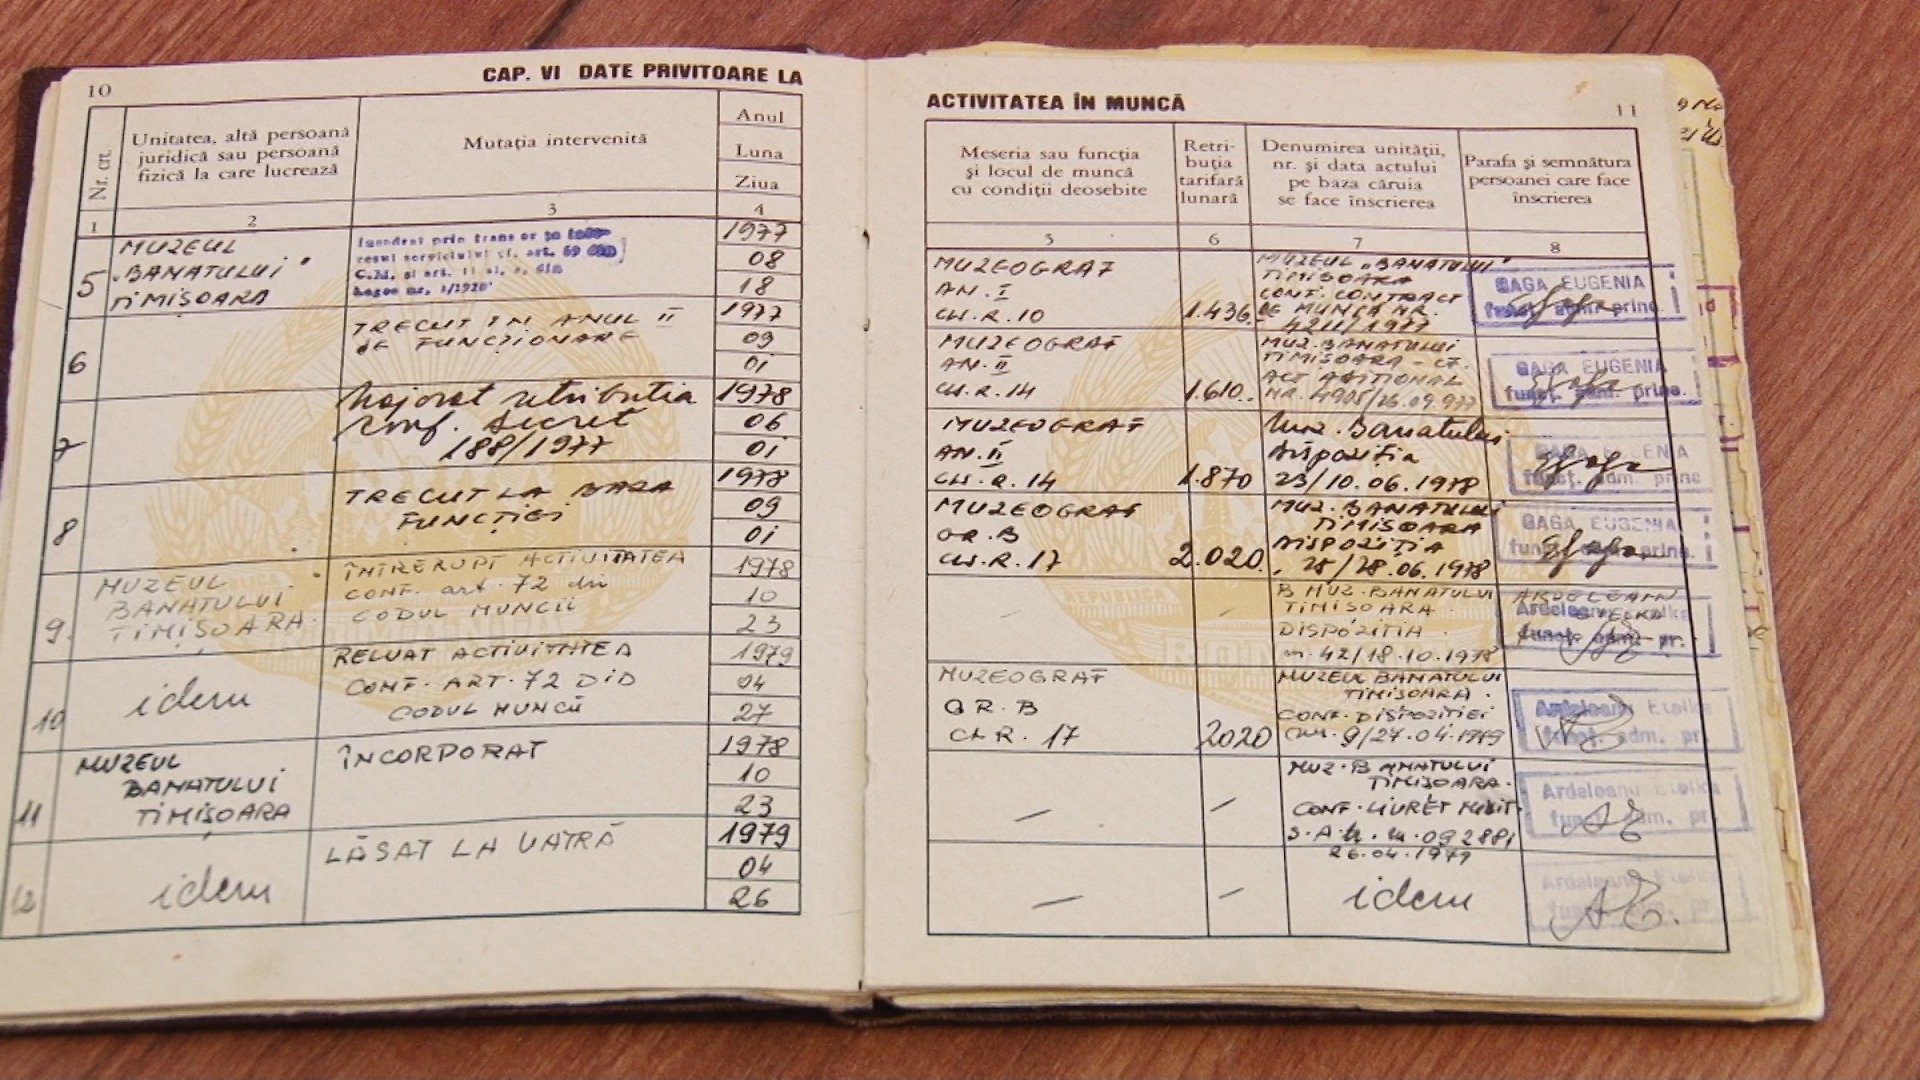 10
CAP. VI DATE PRIVITOARE LA
Nr. crt.
Unitatea, altă persoană
juridică sau persoană
fizică la care lucrează
Mutația intervenită
Anul
Luna
Ziua
1
2
3
4
5
MUZEUL
"BANATULUI"
TIMIȘOARA
C.M. și art. 11 al.
1977
08
18
6
TRECUT IN ANUL II
DE FUNCȚIONARE
1977
09
01
7
Majorat retributia
conf. decret
188/1977
1978
06
01
8
TRECUT LA BAZA
FUNCȚIEI
1978
09
01
9.
MUZEUL
BANATULUI
TIMIȘOARA
ÎNTRERUPT ACTIVITATEA
CONF. art. 72 din
CODUL MUNCII
1978
10
23
10
idem
RELUAT ACTIVITATEA
CONF. ART. 72 DID
CODUL MUNCII
1979
04
27
11
MUZEUL
BANATULUI
TIMIȘOARA
ÎNCORPORAT
1978
10
23
12
idem
LĂSAT LA VATRĂ
1979
04
26
ACTIVITATEA ÎN MUNCĂ
11
Meseria sau funcția
și locul de muncă
cu condiții deosebite
Retri-
buția
tarifară
lunară
Denumirea unității,
nr. și data actului
pe baza căruia
se face înscrierea
Parafa și semnătura
persoanei care face
înscrierea
5
6
7
8
MUZEOGRAF
AN. I
CL. R. 10
1.436.
MUZEUL "BANATULUI"
TIMIȘOARA
CONF. CONTRACT
DE MUNCĂ NR.
4211/1977
GAGA EUGENIA
funcț. adm. princ.
MUZEOGRAF
AN. II
CL. R. 14
1.610.
MUZ. BANATULUI
TIMIȘOARA - CF.
ACT ADIȚIONAL
NR. 4905/26.09.977
GAGA EUGENIA
funcț. adm. princ.
MUZEOGRAF
AN. II
CL. R. 14
1.870
Muz. Banatului
Dispoziția
23/10.06.1978
GAGA EUGENIA
funcț. adm. princ
MUZEOGRAF
GR. B
CL. R. 17
2.020.
MUZ. BANATULUI
TIMIȘOARA
DISPOZIȚIA
28/28.06.1978
GAGA EUGENIA
funcț. adm. princ.
-
-
B MUZ. BANATULUI
TIMIȘOARA
DISPOZITIA
nr. 42/18.10.1978
ARDELEANU
ETELKA
Ardeleanu Etelka
funcț. adm. pr.
MUZEOGRAF
GR. B
CL R. 17
2020
MUZEUL BANATULUI
TIMIȘOARA.
CONF. DISPOZIȚIEI
nr. 9/27.04.1979
Ardeleanu Etelka
funcț. adm. pr.
-
-
MUZ. BANATULUI
TIMIȘOARA.
CONF. LIVRET MILIT.
092881
26.04.1979
Ardeleanu Etelka
funcț. adm. pr.
-
-
idem
Ardeleanu Etelka
funcț. adm. pr.